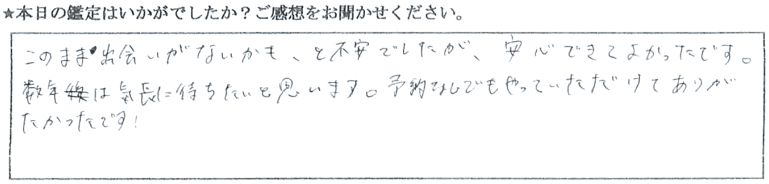 ★本日の鑑定はいかがでしたか？ご感想をお聞かせください。
このまま出会いがないかも、と不安でしたが、安心できてよかったです。
数年は気長に待ちたいと思います。予約なしでもやっていただけてありが
たかったです!